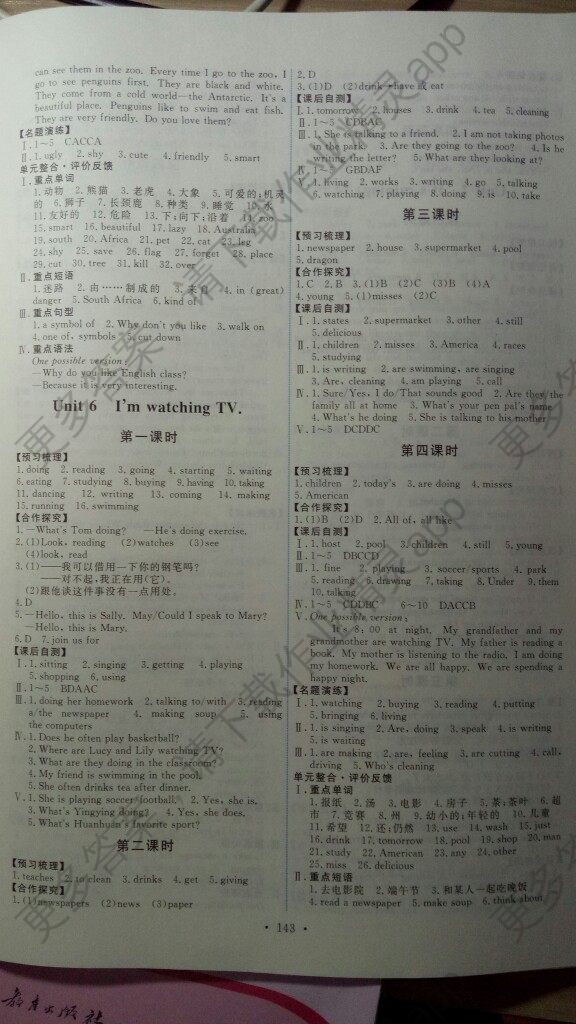 can see them in the zoo. Every time I go to the zoo, I
go to see penguins first. They are black and white.
They come from a cold world—the Antarctic. It's a
beautiful place. Penguins like to swim and eat fish.
They are very friendly. Do you love them?
【名题演练】
Ⅰ.1～5 CACCA
Ⅱ.1.ugly 2.shy 3.cute 4.friendly 5.smart
单元整合·评价反馈
Ⅰ.重点单词
1.动物 2.熊猫 3.老虎 4.大象 5.可爱的;机灵
的 6.狮子 7.长颈鹿 8.种类 9.睡觉 10.水
11.友好的 12.危险 13.下;向下;沿着 14.zoo
15.smart 16.beautiful 17.lazy 18.Australia
19.south 20.Africa 21.pet 22.cat 23.leg
24.shy 25.save 26.flag 27.forget 28.place
29.cut 30.tree 31.kill 32.over
Ⅱ.重点短语
1.迷路 2.由……制成的 3.来自 4.in (great)
danger 5.South Africa 6.kind of
Ⅲ.重点句型
1.a symbol of 2.Why don't you like 3.walk on
4.one of, symbols 5.cut down
Ⅳ.重点语法
One possible version:
—Why do you like English class?
—Because it is very interesting.
Unit 6 I'm watching TV.
第一课时
【预习梳理】
1.doing 2.reading 3.going 4.starting 5.waiting
6.eating 7.studying 8.buying 9.having 10.taking
11.dancing 12.writing 13.coming 14.making
15.running 16.swimming
【合作探究】
1.—What's Tom doing? —He's doing exercise.
2.(1)Look, reading (2)watches (3)see
(4)look, read
3.(1)——我可以借用一下你的钢笔吗?
——对不起,我正在用(它)。
(2)跟他谈这件事没有一点用处。
4.D
5.—Hello, this is Sally. May/Could I speak to Mary?
—Hello, this is Mary.
6.D 7.join us for
【课后自测】
Ⅰ.1.sitting 2.singing 3.getting 4.playing
5.shopping 6.using
Ⅱ.1～5 BDAAC
Ⅲ.1.doing her homework 2.talking to/with 3.reading
a/the newspaper 4.making soup 5.using
the computers
Ⅳ.1.Does he often play basketball?
2.Where are Lucy and Lily watching TV?
3.What are they doing in the classroom?
4.My friend is swimming in the pool.
5.She often drinks tea after dinner.
Ⅴ.1.She is playing soccer/football. 2.Yes, she is.
3.What's Yingying doing? 4.Yes, she does.
5.What's Huanhuan's favorite sport?
第二课时
【预习梳理】
1.teaches 2.to clean 3.drinks 4.get 5.giving
【合作探究】
1.(1)newspapers (2)news (3)paper
2.D
3.(1)D (2)drink→have 或 eat
【课后自测】
Ⅰ.1.tomorrow 2.houses 3.drink 4.tea 5.cleaning
Ⅱ.1～5 CDBAC
Ⅲ.1.She is talking to a friend. 2.I am not taking photos
in the park. 3.Are they going to the zoo? 4.Is he
writing the letter? 5.What are they looking at?
1～5 GBDAF
1.living 2.works 3.writing 4.go 5.talking
6.watching 7.playing 8.doing 9.is 10.take
第三课时
【预习梳理】
1.newspaper 2.house 3.supermarket 4.pool
5.dragon
【合作探究】
1.C 2.B 3.(1)B (2)C (3)B (4)A
4.young 5.(1)misses (2)C
【课后自测】
Ⅰ.1.states 2.supermarket 3.other 4.still
5.delicious
Ⅱ.1.children 2.misses 3.America 4.races
5.studying
Ⅲ.1.is writing 2.are swimming, are singing
3.Are, cleaning 4.am playing 5.call
Ⅳ.1.Sure/Yes, I do/That sounds good 2.Are they/the
family all at home 3.What's your pen pal's name
4.What's he doing 5.She is talking to his mother
Ⅴ.1～5 DCDDC
第四课时
【预习梳理】
1.children 2.today's 3.are doing 4.misses
5.American
【合作探究】
1.(1)B (2)D 2.All of, all like
【课后自测】
Ⅰ.1.host 2.pool 3.children 4.still 5.young
Ⅱ.1～5 DBCCD
Ⅲ.1.fine 2.playing 3.soccer/sports 4.park
5.reading 6.drawing 7.taking 8.Under 9.them
10.talking
Ⅳ.1～5 CDDBC 6～10 DACCB
Ⅴ.One possible version:
It's 8:00 at night. My grandfather and my
grandmother are watching TV. My father is reading a
book. My mother is listening to the radio. I am doing
my homework. We are all happy. We are spending a
happy night.
【名题演练】
Ⅰ.1.watching 2.buying 3.reading 4.putting
5.bringing 6.living
Ⅱ.1.is singing 2.Are, doing 3.speak 4.is writing
5.is waiting
Ⅲ.1.are making 2.are, feeling 3.are cutting 4.call,
driving 5.Who's cleaning
单元整合·评价反馈
Ⅰ.重点单词
1.报纸 2.汤 3.电影 4.房子 5.茶;茶叶 6.超
市 7.竞赛 8.州 9.幼小的;年轻的 10.儿童
11.希望 12.还;仍然 13.use 14.wash 15.just
16.drink 17.tomorrow 18.pool 19.shop 20.man
21.study 22.American 23.any 24.other
25.miss 26.delicious
Ⅱ.重点短语
1.去电影院 2.端午节 3.和某人一起吃晚饭
4.read a newspaper 5.make soup 6.think about
· 143 ·
更多答案 请下载作业精灵 app
教育出版社